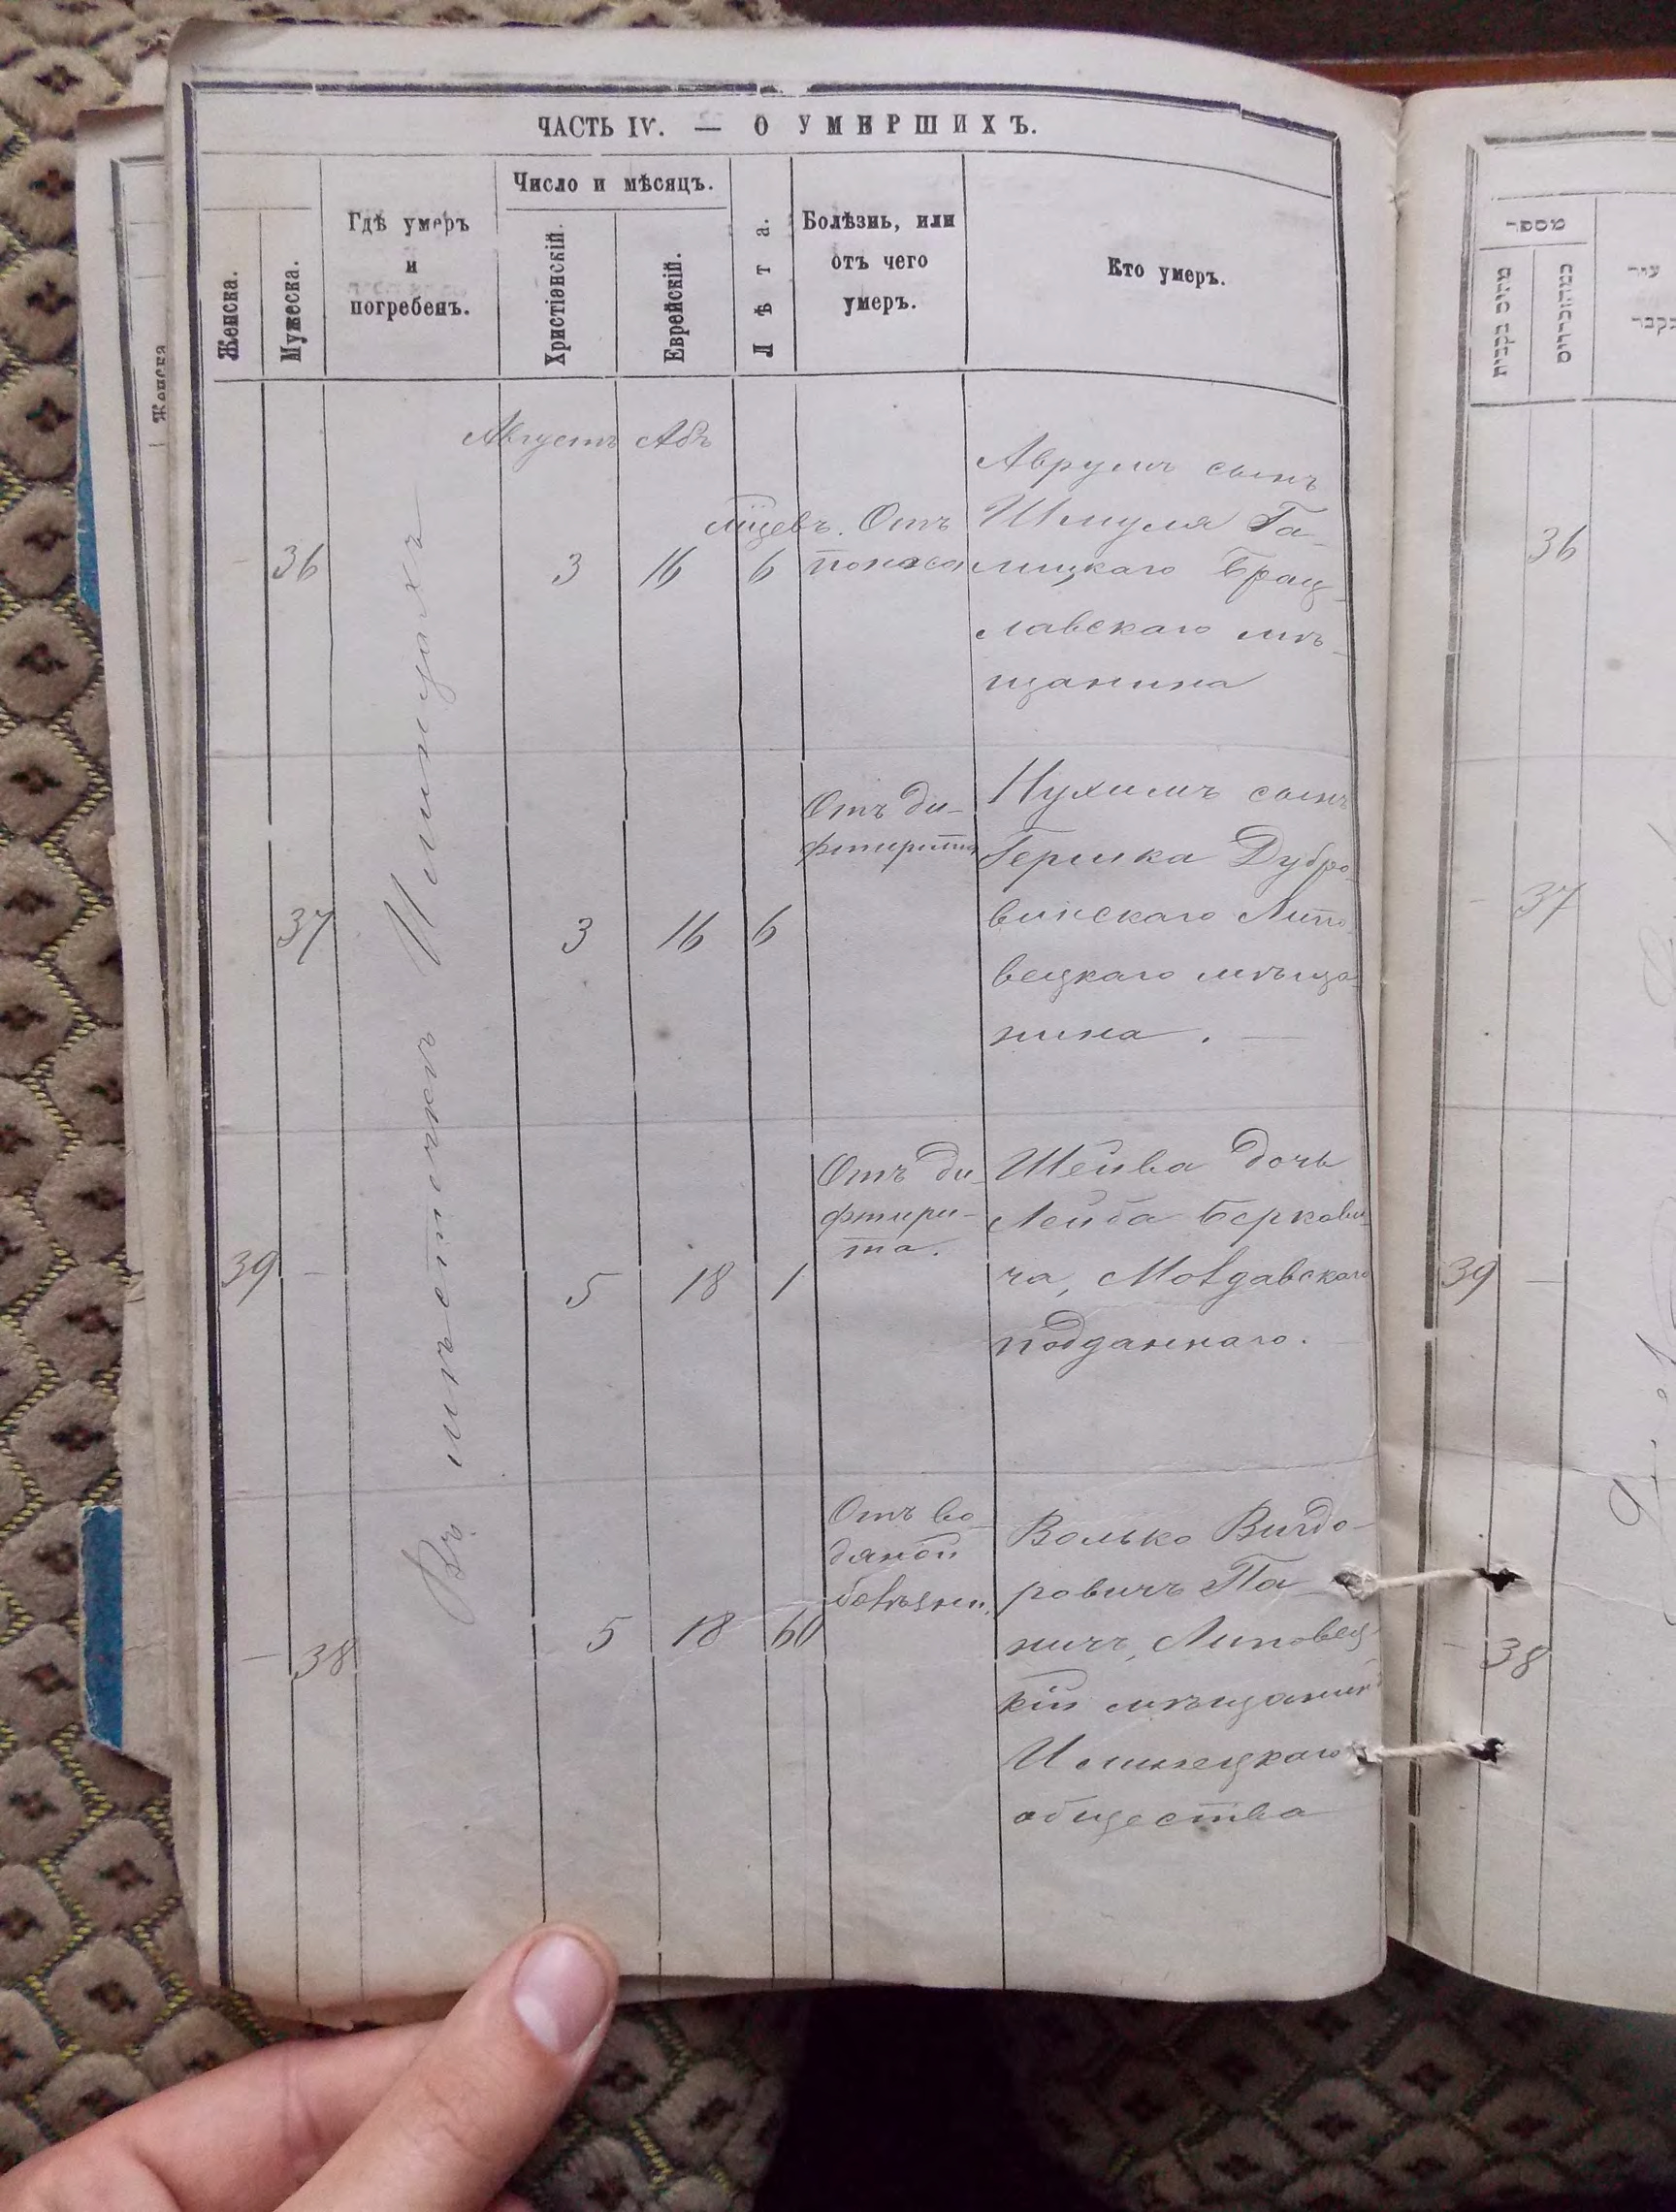 ЧАСТЬ IV. — О УМЕРШИХЪ.
Женска.
Мужеска.
Гдѣ умеръ
и
погребенъ.
Число и мѣсяцъ.
Христіанскій.
Еврейскій.
Лѣта.
Болѣзнь, или
отъ чего
умеръ.
Кто умеръ.
Въ мѣстечкѣ Илинцахъ
Августъ Абъ
- 36 3 16 6
мѣсяцевъ. Отъ
поноса
Аврумъ сынъ
Шмуля Га-
лицкаго Брац-
лавскаго мѣ-
щанина
37 3 16 6
Отъ ди-
фтирита
Нухимъ сынъ
Гершка Дубро-
винскаго Липо-
вецкаго мѣща-
нина . —
39 - 5 18 1
Отъ ди-
фтири-
та.
Шейва дочь
Лейба Беркови-
ча, Молдавскаго
подданнаго.
- 38 5 18 60
Отъ во-
дяной
болѣзни.
Волько Вигдо-
ровичъ Па-
ничъ, Липовец-
кій мѣщанинъ
Илинецкаго
общества
Женска
מספר
36
- 37
39 —
- 38